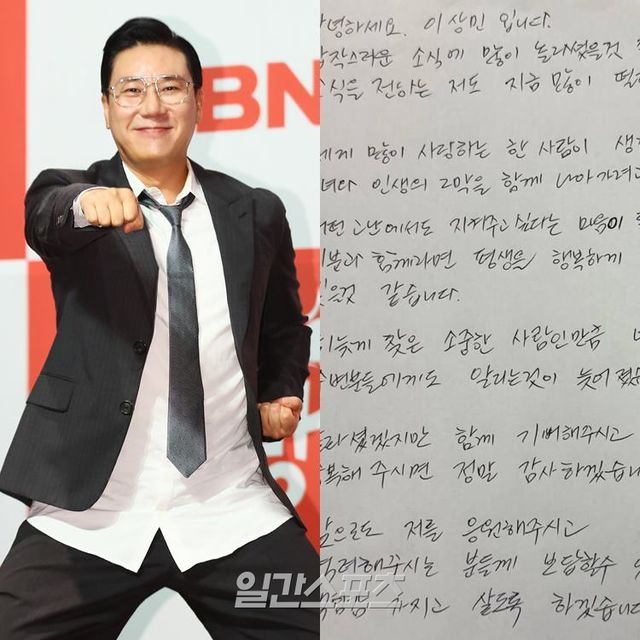 BN
안녕하세요. 이상민 입니다.
갑작스러운 소식에 많이 놀라셨을것
소식을 전하는 저도 지금 많이
에게 많이 사랑하는 한 사람이
인생의 2막을 함께 나아가려고
어떤 고난에서도 지켜주고 싶다는 마음이
함께라면 평생을 행복하게
있을것 같습니다.
뒤늦게 찾은 소중한 사람인만큼
주변분들에게도 알리는것이 늦어졌
놀라셨겠지만 함께 기뻐해주시고
축복해 주시면 정말 감사하겠습니
앞으로도 저를 응원해주시고
격려해주시는 분들께 보답할수
살도록 하겠습니다
일간스포츠